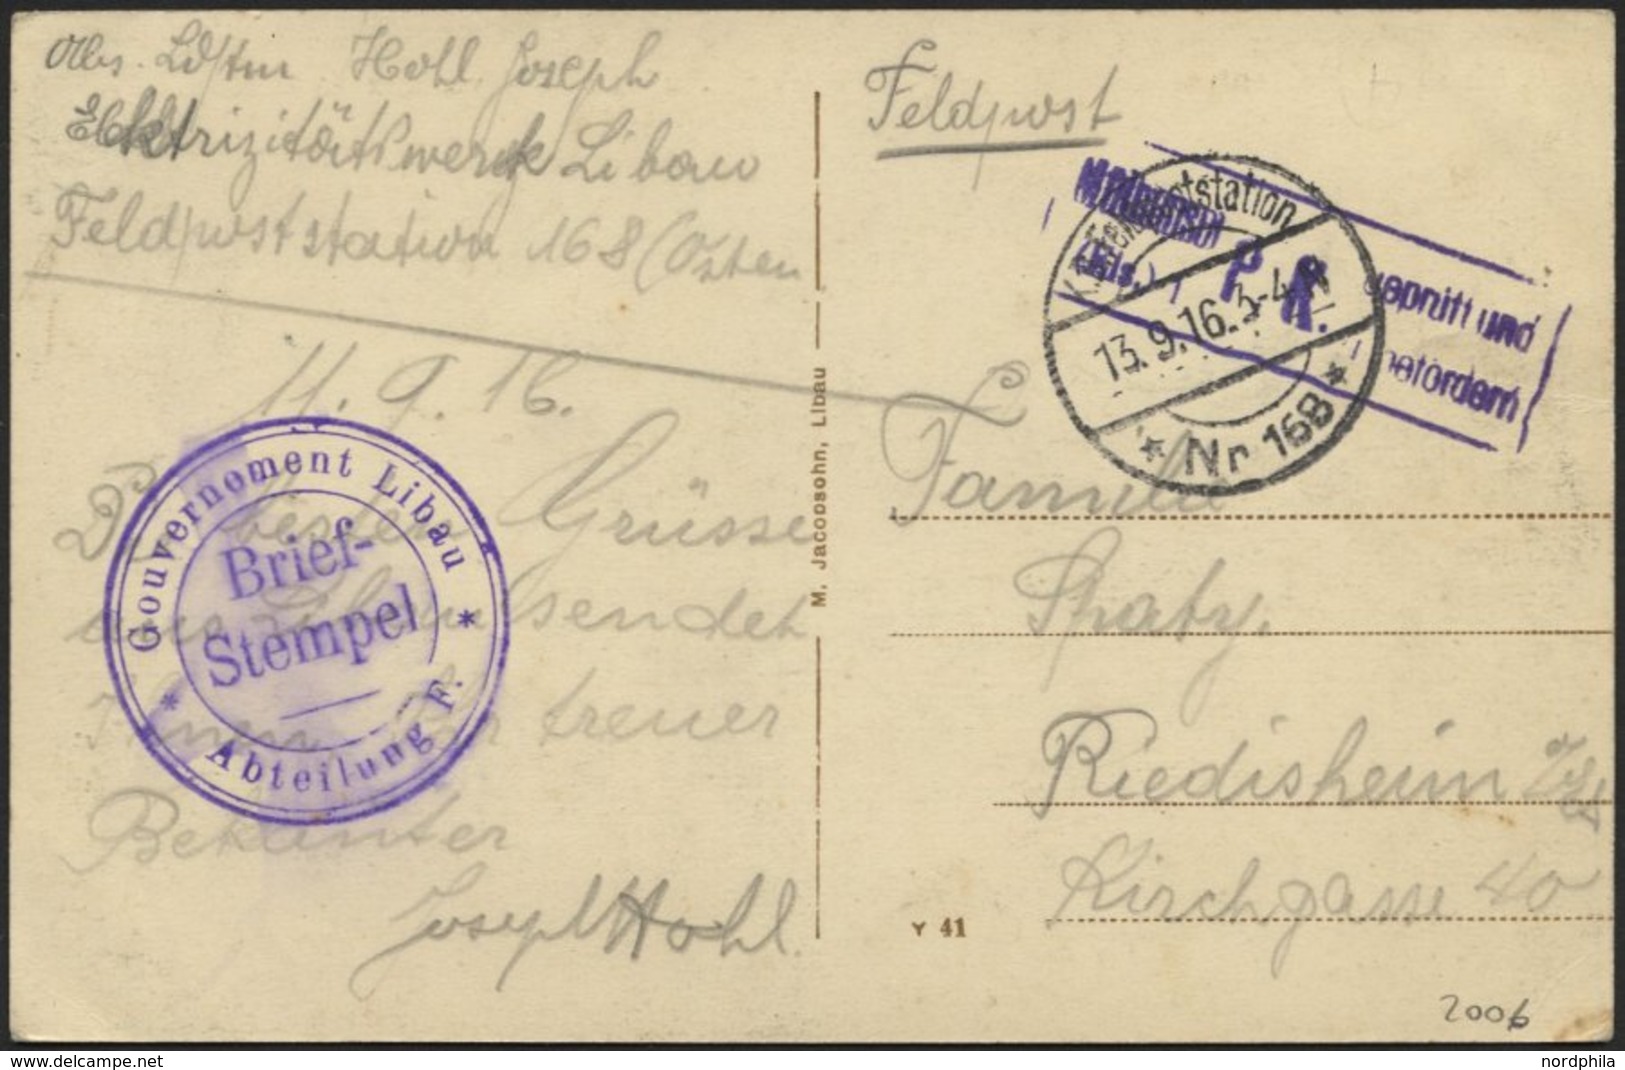 Abs. Ldstm Hohl Joseph
Elektrizitätswerk Libau
Feldpoststation 168 (Osten
11.9.16.
Die besten Grüsse
aus Libau sendet
Ihnen Ihr treuer
Bekanter
Joseph Hohl.
Gouvernement Libau
Brief-
Stempel
* Abteilung F. *
M. Jacobsohn, Libau
Feldpost
Mülhausen
(Els.)
P. K.
geprüft und
zu befördern
K.D. Feldpoststation
13.9.16.3-4N
* Nr 168 *
Familie
Spaty,
Riedisheim
Kirchgasse 40
Y 41
2006
www.delcampe.net
nordphila